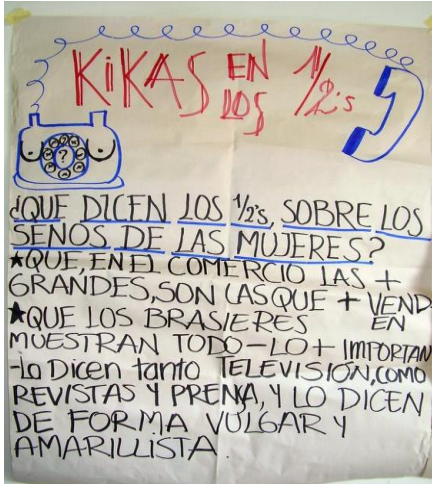 KiKAS EN LOS 1/2's
?
¿QUE DICEN LOS 1/2's, SOBRE LOS
SENOS DE LAS MUJERES?
★QUE, EN EL COMERCIO LAS +
GRANDES, SON LAS QUE + VEND
★QUE LOS BRASIERES EN
MUESTRAN TODO - LO + IMPORTAN
-Lo Dicen tanto TELEVISIÓN, COMO
REVISTAS Y PRENSA, Y LO DICEN
DE FORMA VULGAR Y
AMARILLISTA.